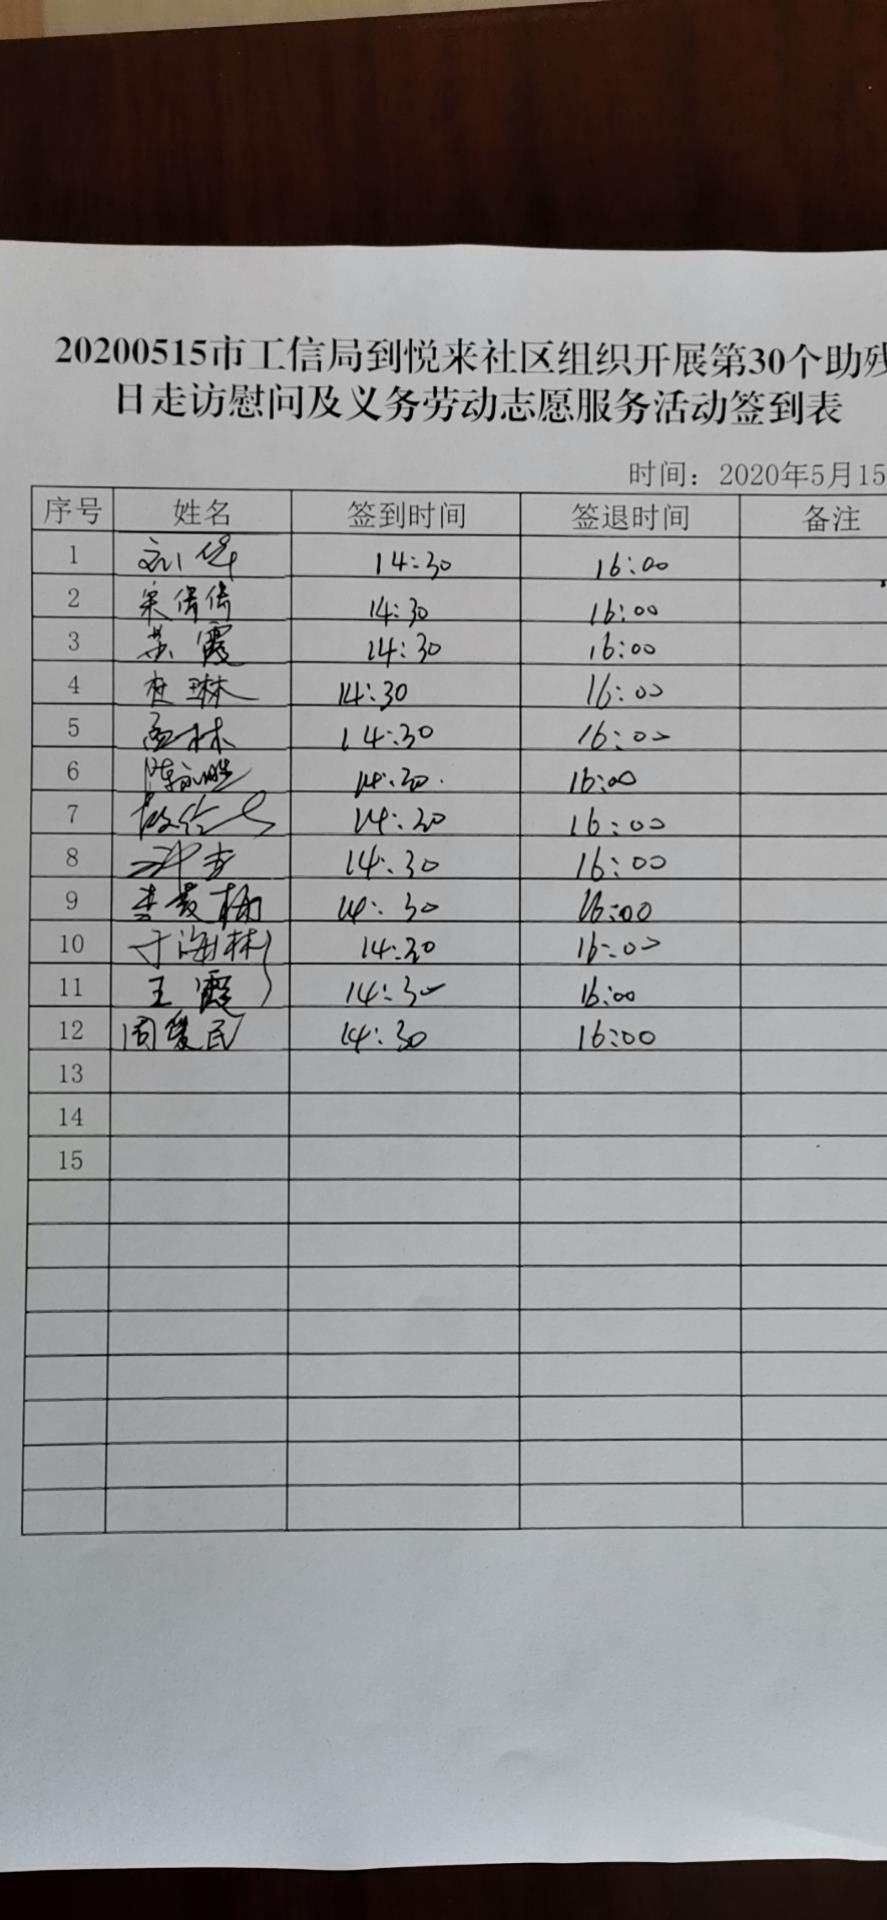 20200515市工信局到悦来社区组织开展第30个助残
日走访慰问及义务劳动志愿服务活动签到表
时间：2020年5月15
序号 姓名 签到时间 签退时间 备注
1 刘华 14:30 16:00
2 宋倩倩 14:30 16:00
3 苏霞 14:30 16:00
4 杜琳 14:30 16:00
5 孟林 14:30 16:00
6 陈永胜 14:30 16:00
7 14:30 16:00
8 14:30 16:00
9 李黄楠 14:30 16:00
10 于海林 14:30 16:00
11 王霞 14:30 16:00
12 周爱民 14:30 16:00
13
14
15